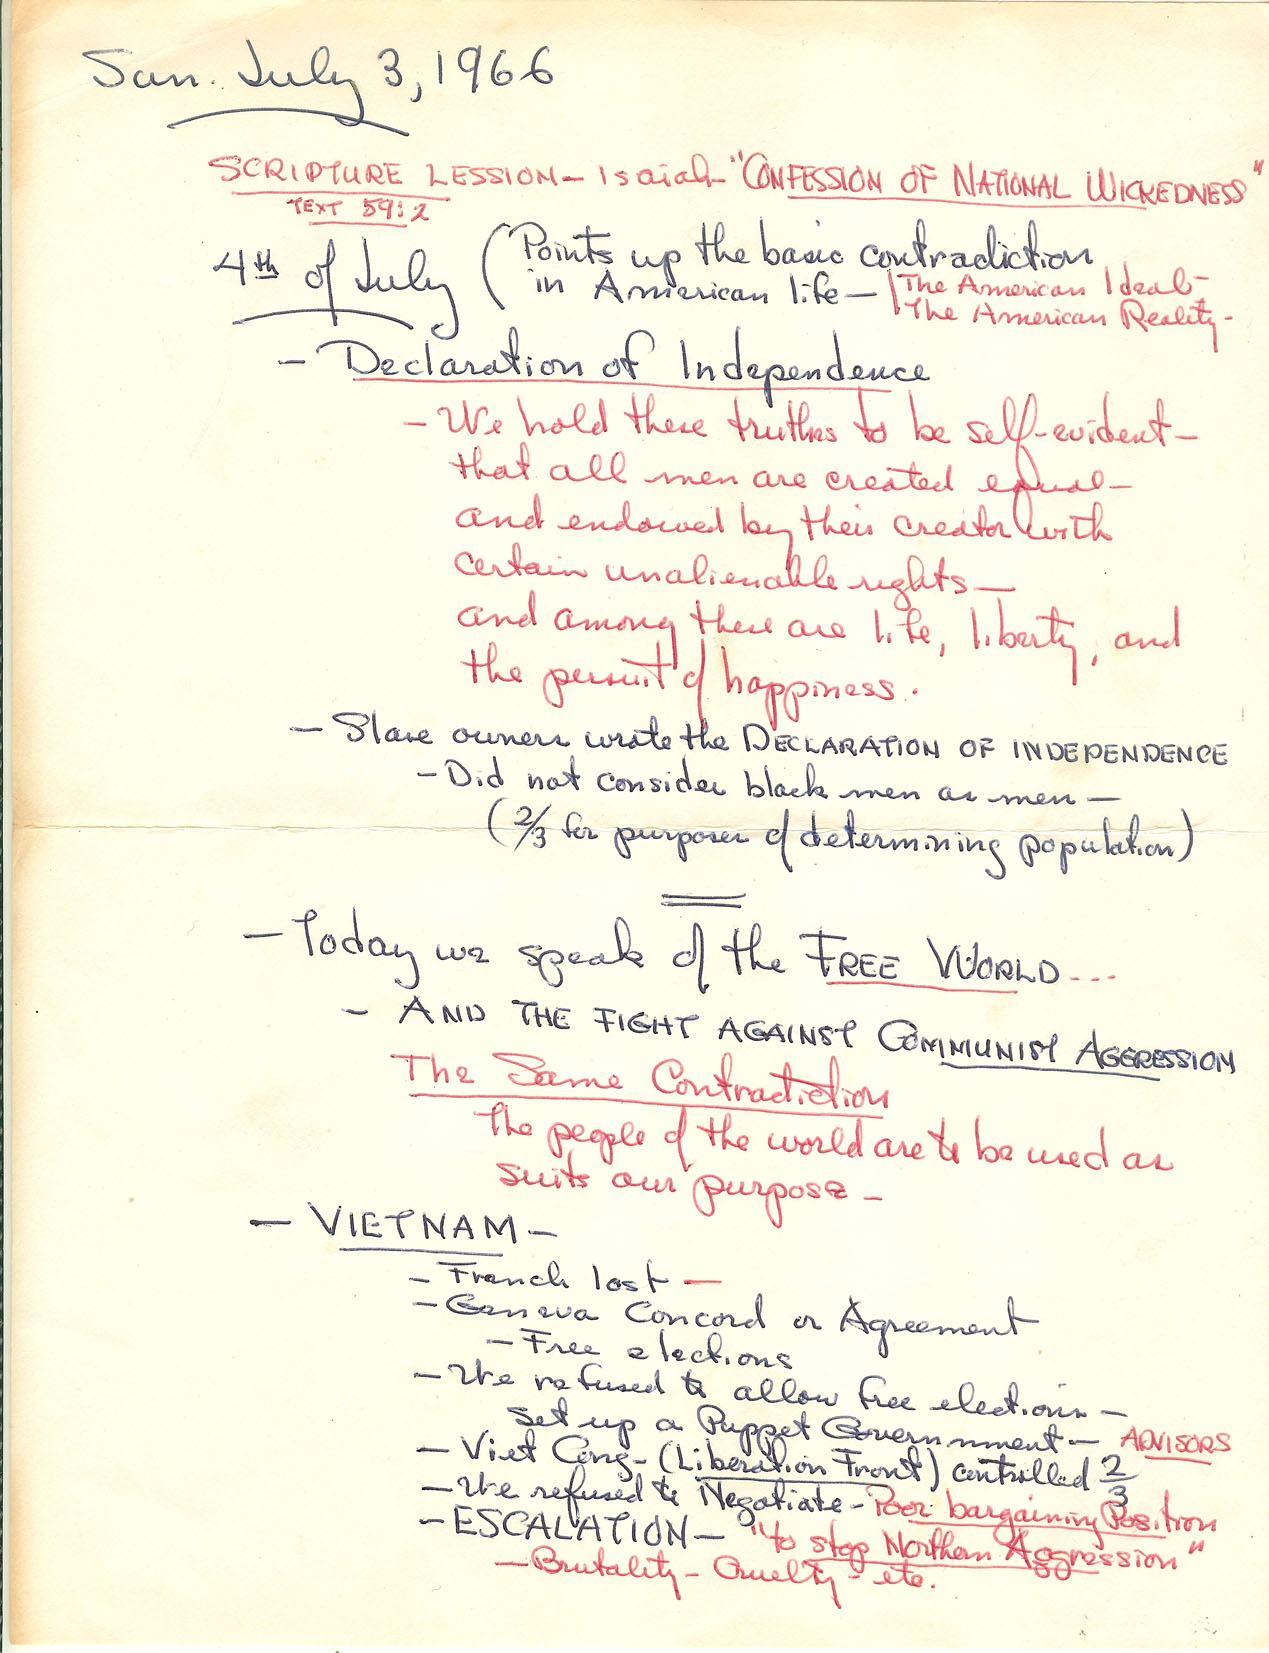 Sun. July 3, 1966
SCRIPTURE LESSION - Isaiah - "CONFESSION OF NATIONAL WICKEDNESS"
TEXT 59:2
4th of July (Points up the basic contradiction
in American life - The American Ideal -
The American Reality -
- Declaration of Independence
- We hold these truths to be self-evident -
that all men are created equal -
and endowed by their creator with
certain unalienable rights -
and among these are life, liberty, and
the persuit of happiness.
- Slave owners wrote the DECLARATION OF INDEPENDENCE
- Did not consider black men as men -
(2/3 for purposes of determining population)
- Today we speak of the FREE WORLD...
- AND THE FIGHT AGAINST COMMUNIST AGGRESSION
The Same Contradiction
The people of the world are to be used as
suits our purpose -
- VIETNAM -
- French lost -
- Geneva Concord or Agreement
- Free elections
- We refused to allow free elections -
set up a Puppet Government - ADVISORS
- Viet Cong - (Liberation Front) controlled 2/3
- We refused to Negotiate - Poor bargaining Position
- ESCALATION - "to stop Northern Aggression"
- Brutality - Cruelty - etc.